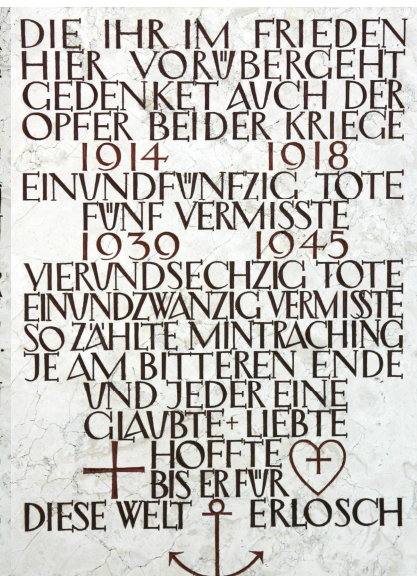 DIE IHR IM FRIEDEN
HIER VORÜBERGEHT
GEDENKET AUCH DER
OPFER BEIDER KRIEGE
1914 1918
EINUNDFÜNFZIG TOTE
FÜNF VERMISSTE
1939 1945
VIERUNDSECHZIG TOTE
EINUNDZWANZIG VERMISSTE
SO ZÄHLTE MINTRACHING
JE AM BITTEREN ENDE
UND JEDER EINE
GLAUBTE + LIEBTE
HOFFTE
BIS ER FÜR
DIESE WELT ERLOSCH